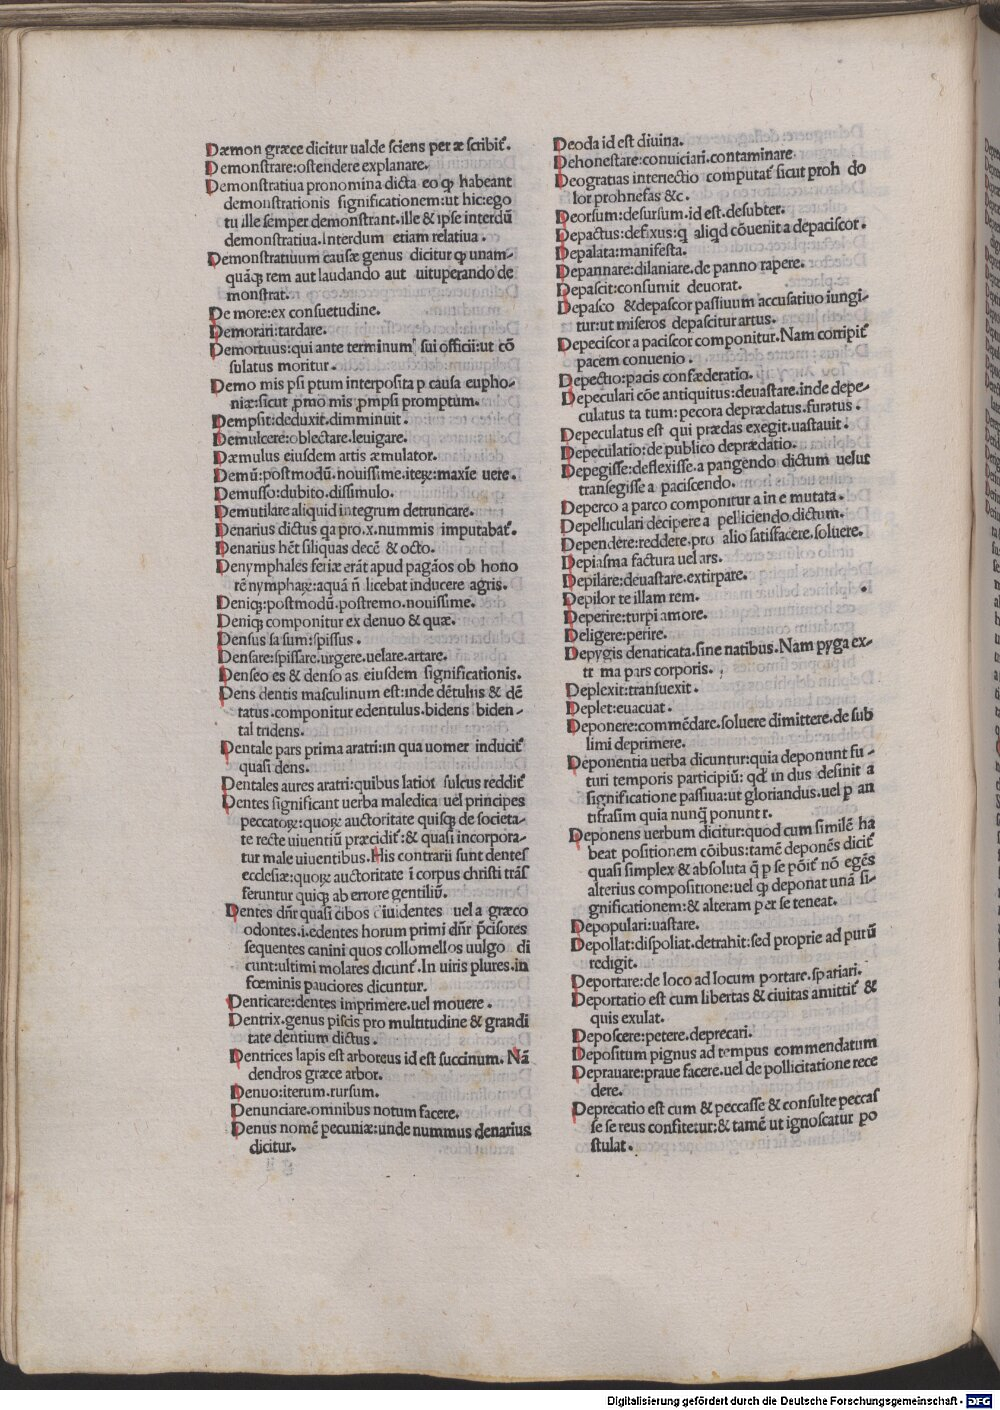 Dæmon græce dicitur ualde sciens per æ scribit᷑.
Demonstrare:ostendere explanare.
Demonstratiua pronomina dicta eo ꝙ habeant
demonstrationis significationem:ut hic:ego
tu ille semper demonstrant.ille & ipse interdū
demonstratiua.Interdum etiam relatiua.
Demonstratiuum causæ genus dicitur ꝙ unam-
quāqꝫ rem aut laudando aut uituperando de
monstrat.
De more:ex consuetudine.
Demorari:tardare.
Demortuus:qui ante terminum sui officii:ut cō
sulatus moritur.
Demo mis psi ptum interposita p causa eupho-
niæ:sicut ꝓmo mis ꝓmpsi promptum.
Dempsit:deduxit.dimminuit.
Demulcere:oblectare.leuigare.
Dæmulus eiusdem artis æmulator.
Demū:postmodū.nouissime.iteꝝ:maxīe uere.
Demusso:dubito.dissimulo.
Demutilare aliquid integrum detruncare.
Denarius dictus qa pro.x.nummis imputabat᷑.
Denarius hēt siliquas decē & octo.
Denymphales feriæ erāt apud pagāos ob hono
rē nymphaꝝ:aquā n̄ licebat inducere agris.
Deniqꝫ:postmodū.postremo.nouissime.
Deniqꝫ componitur ex denuo & quæ.
Densus sa sum:spissus.
Densare:spissare.urgere.uelare.artare.
Denseo es & denso as eiusdem significationis.
Dens dentis masculinum est:inde dētulus & dē
tatus.componitur edentulus.bidens biden-
tal tridens.
Dentale pars prima aratri:in qua uomer inducit᷑
quasi dens.
Dentales aures aratri:quibus latior sulcus reddit᷑
Dentes significant uerba maledica uel principes
peccatoꝝ:quoꝝ auctoritate quisqꝫ de societa-
te recte uiuentiū præcidit᷑:& quasi incorpora-
tur male uiuentibus.His contrarii sunt dentes
ecclesiæ:quoꝝ auctoritate ī corpus christi trās
feruntur quiqꝫ ab errore gentiliū.
Dentes dn̄r quasi cibos diuidentes uel a græco
odontes.i.edentes horum primi dn̄r p̄cisores
sequentes canini quos collomellos uulgo di
cunt:ultimi molares dicunt᷑.In uiris plures.in
fœminis pauciores dicuntur.
Denticare:dentes imprimere.uel mouere.
Dentrix.genus piscis pro multitudine & grandi
tate dentium dictus.
Dentrices lapis est arboreus id est succinum. Nā
dendros græce arbor.
Denuo:iterum.rursum.
Denunciare.omnibus notum facere.
Denus nomē pecuniæ:unde nummus denarius
dicitur.
Deoda id est diuina.
Dehonestare:conuiciari.contaminare.
Deogratias interiectio computat᷑ sicut proh do
lor prohnefas &c.
Deorsum:desursum.id est.desubter.
Depactus:defixus:q aliqd cōuenit a depaciscor.
Depalata:manifesta.
Depannare:dilaniare.de panno rapere.
Depascit:consumit deuorat.
Depasco &depascor passiuum accusatiuo iungi-
tur:ut miseros depascitur artus.
Depeciscor a paciscor componitur.Nam corripit᷑
pacem conuenio.
Depectio:pacis confæderatio.
Depeculari cōe antiquitus:deuastare.inde depe-
culatus ta tum:pecora deprædatus.furatus.
Depeculatus est qui prædas exegit.uastauit.
Depeculatio:de publico deprædatio.
Depegisse:deflexisse.a pangendo dictum uelut
transegisse a paciscendo.
Deperco a parco componitur a in e mutata.
Depelliculari decipere a pelliciendo dictum.
Dependere:reddere.pro alio satisfacere.soluere.
Depiasma factura uel ars.
Depilare:deuastare.extirpare.
Depilor te illam rem.
Deperire:turpi amore.
Deligere:perire.
Depygis denaticata.sine natibus.Nam pyga ex-
tr ma pars corporis.
Deplexit:transuexit.
Deplet:euacuat.
Deponere:commēdare.soluere dimittere.de sub
limi deprimere.
Deponentia uerba dicuntur:quia deponunt fu-
turi temporis participiū: qd in dus desinit a
significatione passiua:ut gloriandus.uel p an
tifrasim quia nunq̄ ponunt r.
Deponens uerbum dicitur:quod cum similē ha
beat positionem cōibus:tamē deponēs dicit᷑
quasi simplex & absoluta q̄ p se pōit᷑ nō egēs
alterius compositione:uel ꝙ deponat unā si-
gnificationem:& alteram per se teneat.
Depopulari:uastare.
Depollat:dispoliat.detrahit:sed proprie ad purū
redigit.
Deportare:de loco ad locum portare.spariari.
Deportatio est cum libertas & ciuitas amittit᷑ &
quis exulat.
Deposcere:petere.deprecari.
Depositum pignus ad tempus commendatum
Deprauare:praue facere.uel de pollicitatione rece
dere.
Deprecatio est cum & peccasse & consulte peccas
se se reus confitetur:& tamē ut ignoscatur po
stulat.
Digitalisierung gefördert durch die Deutsche Forschungsgemeinschaft - DFG